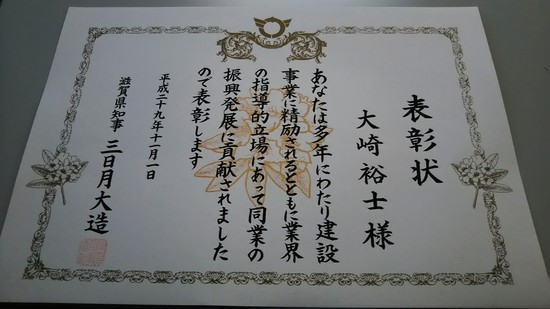 表彰状
大崎裕士様
あなたは多年にわたり建設
事業に精励されるとともに業界
の指導的立場にあって同業の
振興発展に貢献されました
ので表彰します
平成二十九年十一月一日
滋賀県知事 三日月大造